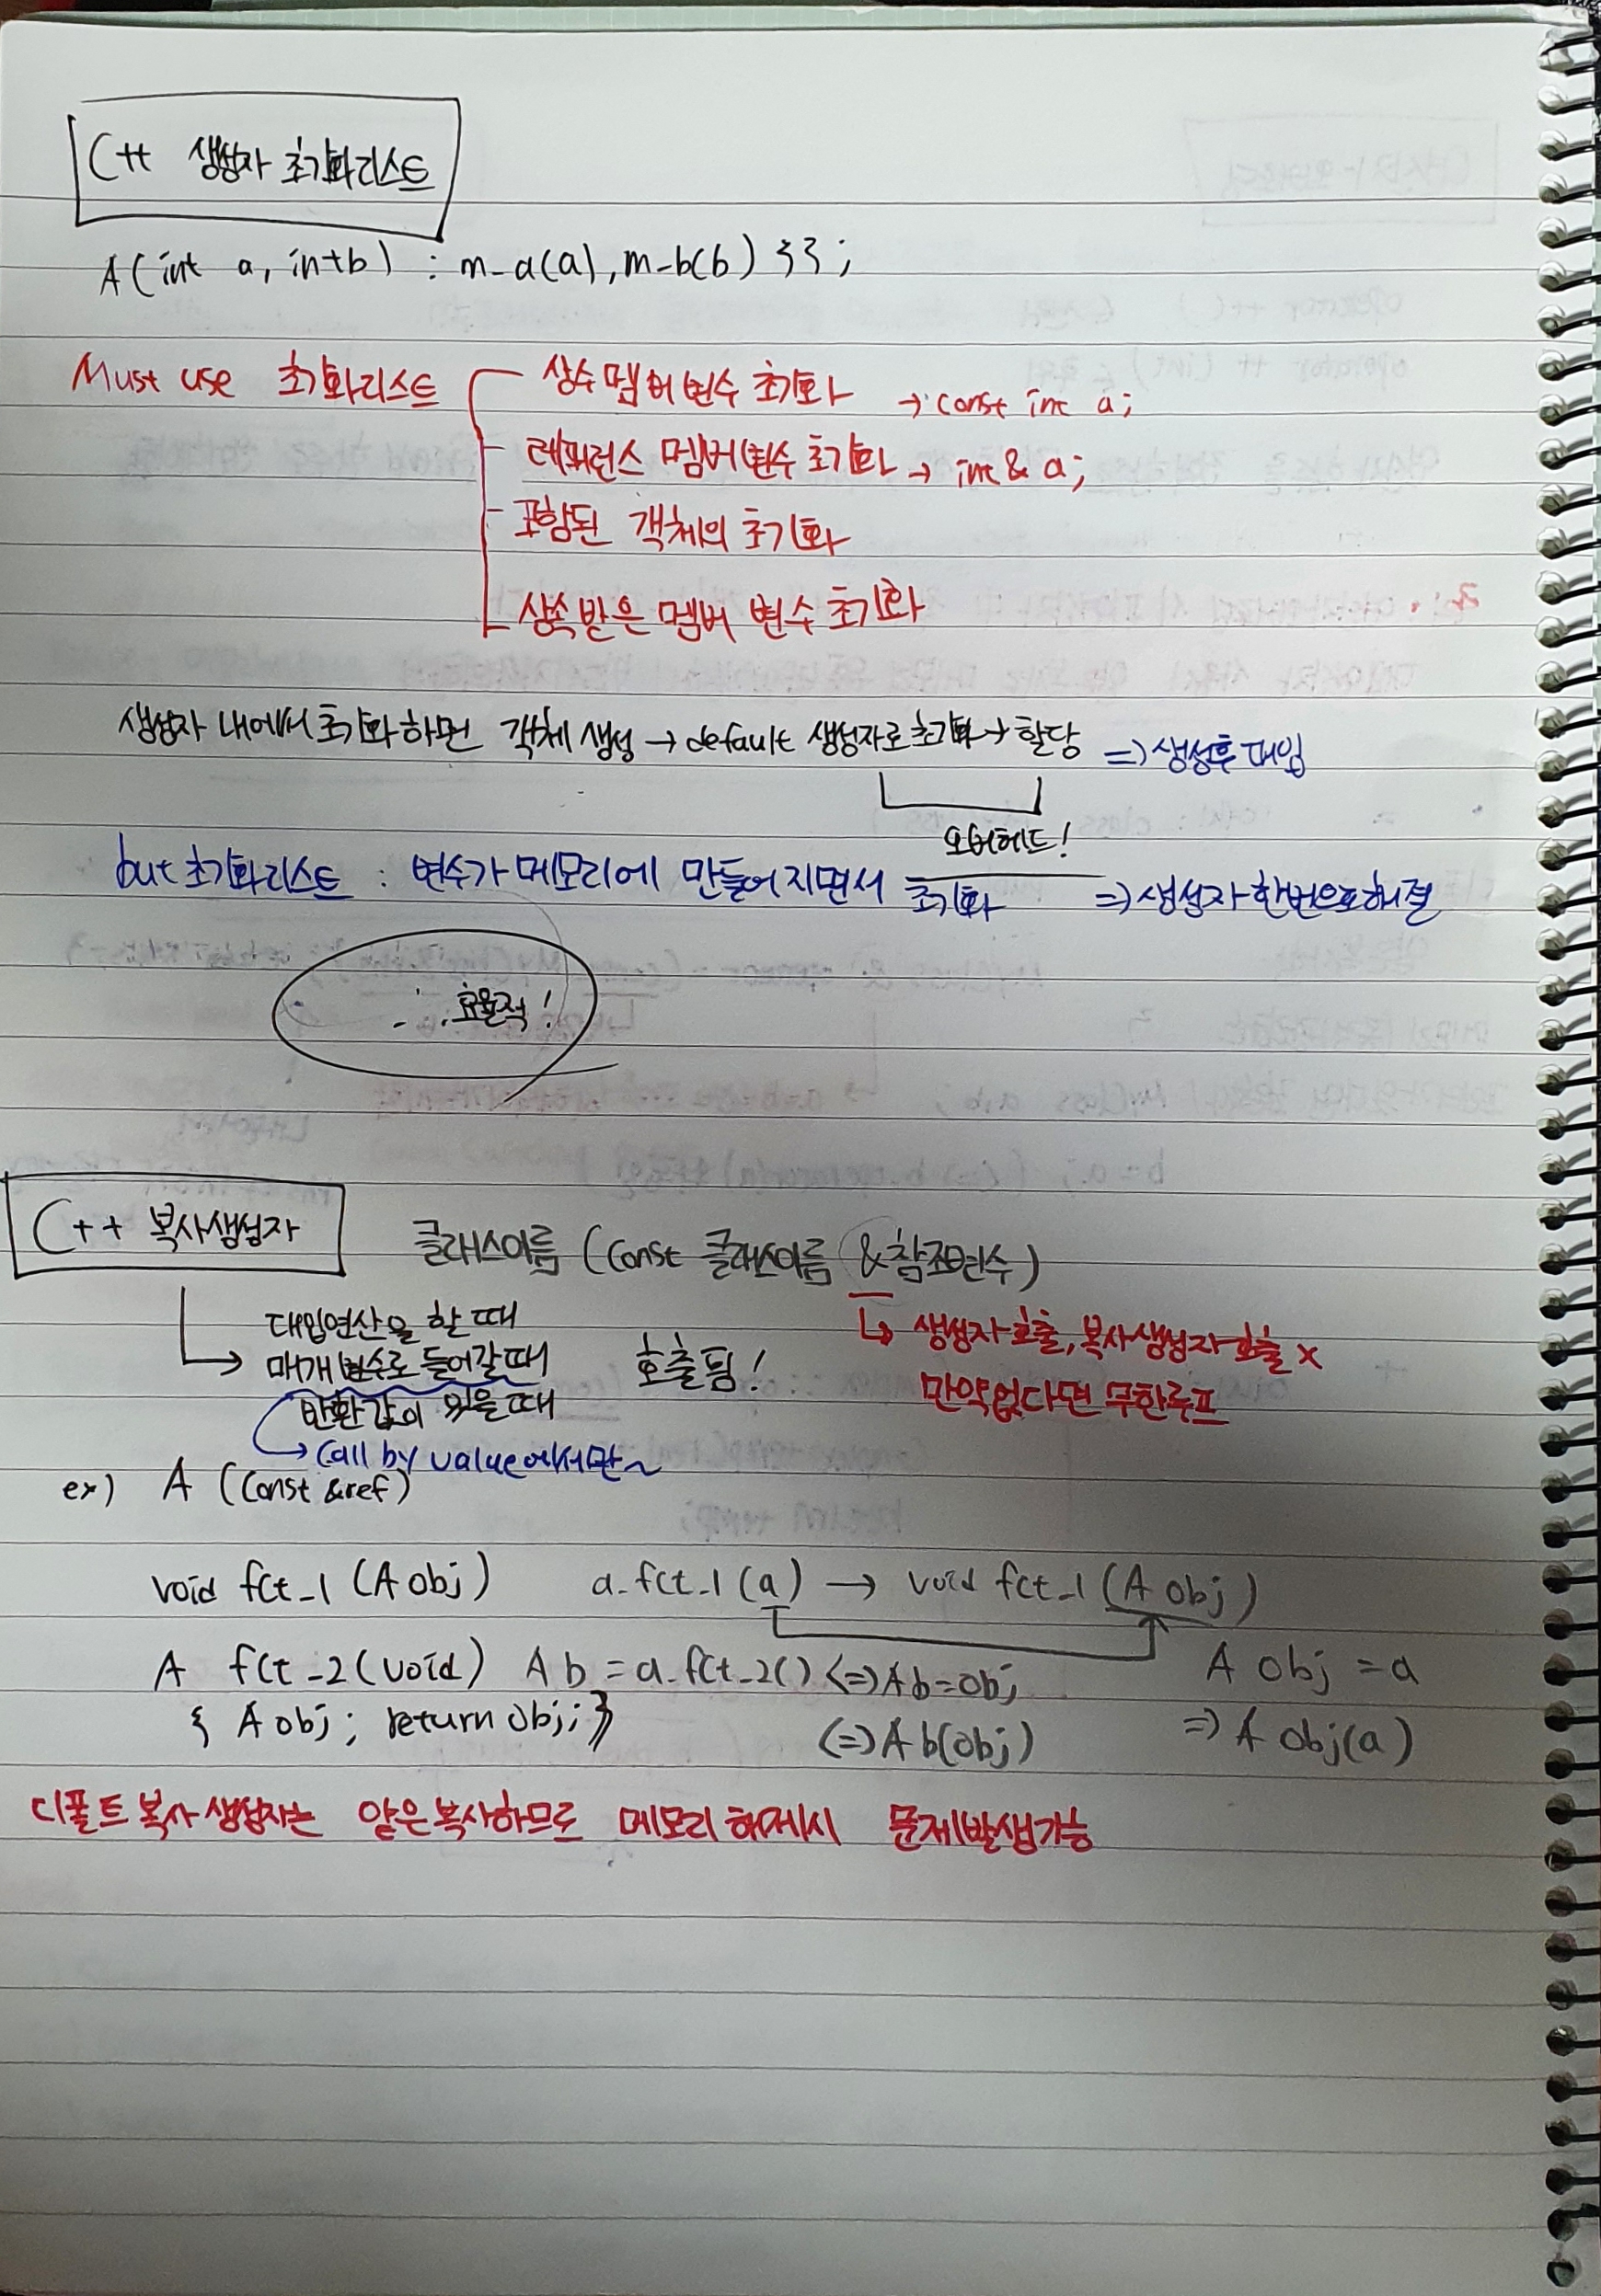 C++ 생성자 초기화리스트
A(int a, int b) : m_a(a), m_b(b) {};
Must use 초기화리스트
상수 멤버 변수 초기화 → const int a;
레퍼런스 멤버변수 초기화 → int & a;
포함된 객체의 초기화
상속받은 멤버 변수 초기화
생성자 내에서 초기화하면 객체 생성 → default 생성자로 초기화 → 할당 ⇒ 생성후 대입
오버헤드!
but 초기화리스트 : 변수가 메모리에 만들어지면서 초기화 ⇒ 생성자 한번으로 해결
∴ 효율적!
C++ 복사생성자
클래스이름 (const 클래스이름 &참조변수)
대입연산을 할 때
매개변수로 들어갈때 호출됨!
반환값이 있을때
→ call by value에서만~
↳ 생성자호출, 복사생성자호출 x
만약없다면 무한루프
ex) A (const &ref)
void fct_1 (A obj) a.fct_1(a) → void fct_1 (A obj)
A obj = a
⇒ A obj(a)
A fct_2(void) A b = a.fct_2() <=> A b = obj;
{ A obj; return obj; } <=> A b(obj)
디폴트 복사 생성자는 얕은복사하므로 메모리 해제시 문제발생가능